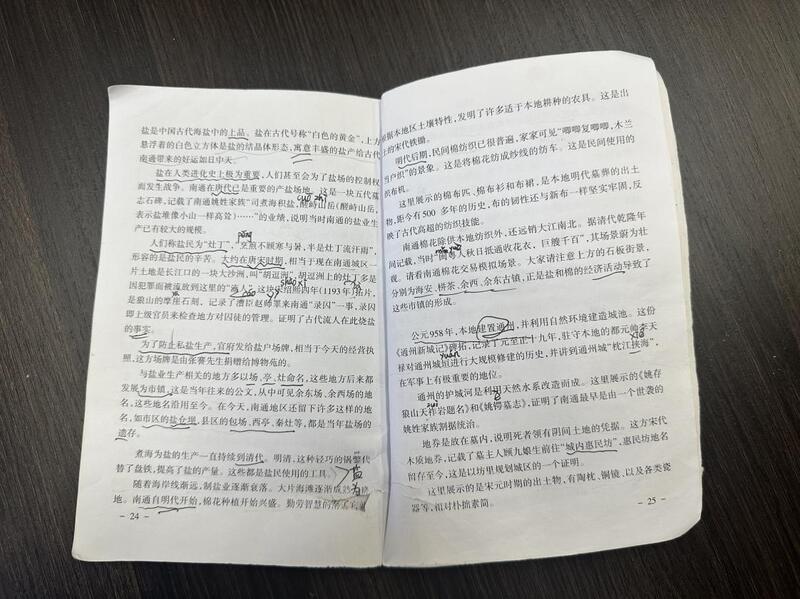 盐是中国古代海盐中的上品。盐在古代号称“白色的黄金”,上方
悬浮着的白色立方体是盐的结晶体形态,寓意丰盛的盐产给古代
南通带来的好运如日中天。
盐在人类进化史上极为重要,人们甚至会为了盐场的控制权
而发生战争。南通在唐代已是重要的产盐场地。这是一块五代墓
志石碑,记载了南通姚姓家族“司煮海积盐,醝峙山岳(醝峙山岳,
表示盐堆像小山一样高耸)……”的业绩,说明当时南通的盐业生
产已有较大的规模。
人们称盐民为“灶丁”,“烹煎不顾寒与暑,半是灶丁流汗雨”,
形容的是盐民的辛苦。大约在唐宋时期,相当于现在南通城区一
片土地是长江口的一块大沙洲,叫“胡逗洲”,胡逗洲上的灶丁多是
因犯罪而被流放到这里的“流人”。这块宋绍熙四年(1193年)拓片,
是狼山的摩崖石刻,记录了漕臣赵师睪来南通“录囚”一事,录囚
即上级官员来检查地方对囚徒的管理。证明了古代流人在此烧盐
的事实。
为了防止私盐生产,官府发给盐户场牌,相当于今天的经营执
照,这方场牌是由张謇先生捐赠给博物苑的。
与盐业生产相关的地方多以场、亭、灶命名,这些地方后来都
发展为市镇,这是当年往来的公文,从中可见余东场、余西场的地
名,这些地名沿用至今。在今天,南通地区还留下许多这样的地
名,如市区的盐仓坝,县区的包场、西亭、秦灶等,都是当年盐场的
遗存。
煮海为盐的生产一直持续到清代。明清,这种轻巧的锅𨱏代
替了盘铁,提高了盐的产量。这些都是盐民使用的工具。
随着海岸线渐远,制盐业逐渐衰落。大片海滩逐渐成
地。南通自明代开始,棉花种植开始兴盛。勤劳智慧的
- 24 -
根据本地区土壤特性,发明了许多适于本地耕种的农具。这是出
土的宋代铁锄。
明代后期,民间棉纺织已很普遍,家家可见“唧唧复唧唧,木兰
当户织”的景象。这是将棉花纺成纱线的纺车。这是民间使用的
织布机。
这里展示的棉布匹、棉布衫和布裙,是本地明代墓葬的出土
物,距今有500多年的历史,布的韧性还与新布一样坚实牢固,反
映了古代高超的纺织技能。
南通棉花除供本地纺织外,还远销大江南北。据清代乾隆年
间记载,当时“闽粤人秋日抵通收花衣,巨艘千百”,其场景蔚为壮
观。请看南通棉花交易模拟场景。大家请注意上方的石板街景,
分别为海安、栟茶、余西、余东古镇,正是盐和棉的经济活动导致了
这些市镇的形成。
公元958年,本地建置通州,并利用自然环境建造城池。这份
《通州新城记》碑拓,记录了元至正十九年,驻守本地的都元帅李天
禄对通州城垣进行大规模修建的历史,并讲到通州城“枕江挟海”,
在军事上有极重要的地位。
通州的护城河是利用天然水系改造而成。这里展示的《姚存
狼山天祚岩题名》和《姚锷墓志》,证明了南通最早是由一个世袭的
姚姓家族割据统治。
地券是放在墓内,说明死者领有阴间土地的凭据。这方宋代
木质地券,记载了墓主人顾九娘生前住“城内惠民坊”,惠民坊地名
留存至今,这是以坊里规划城区的一个证明。
这里展示的是宋元时期的出土物,有陶枕、铜镜,以及各类瓷
器等,相对朴拙素简。
- 25 -